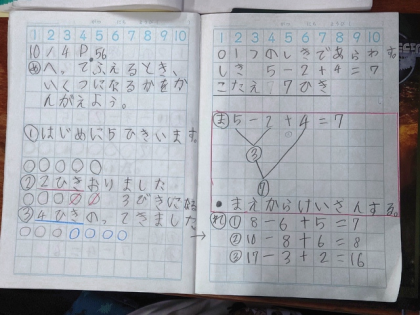 1 2 3 4 5 6 7 8 9 10
10/4 P.56
め へってふえるとき、
いくつになるかをか
んがえよう。
①はじめに5ひきいます。
②2ひきおりました
3びきにな
③4ひきのってきました
1 2 3 4 5 6 7 8 9 10
01つのしきであらわす。
しき 5-2+4=7
こたえ 7ひき
ま 5-2+4=7
③
⑦
●まえからけいさんする。
①8-6+5=7
②10-8+6=8
③17-3+2=16